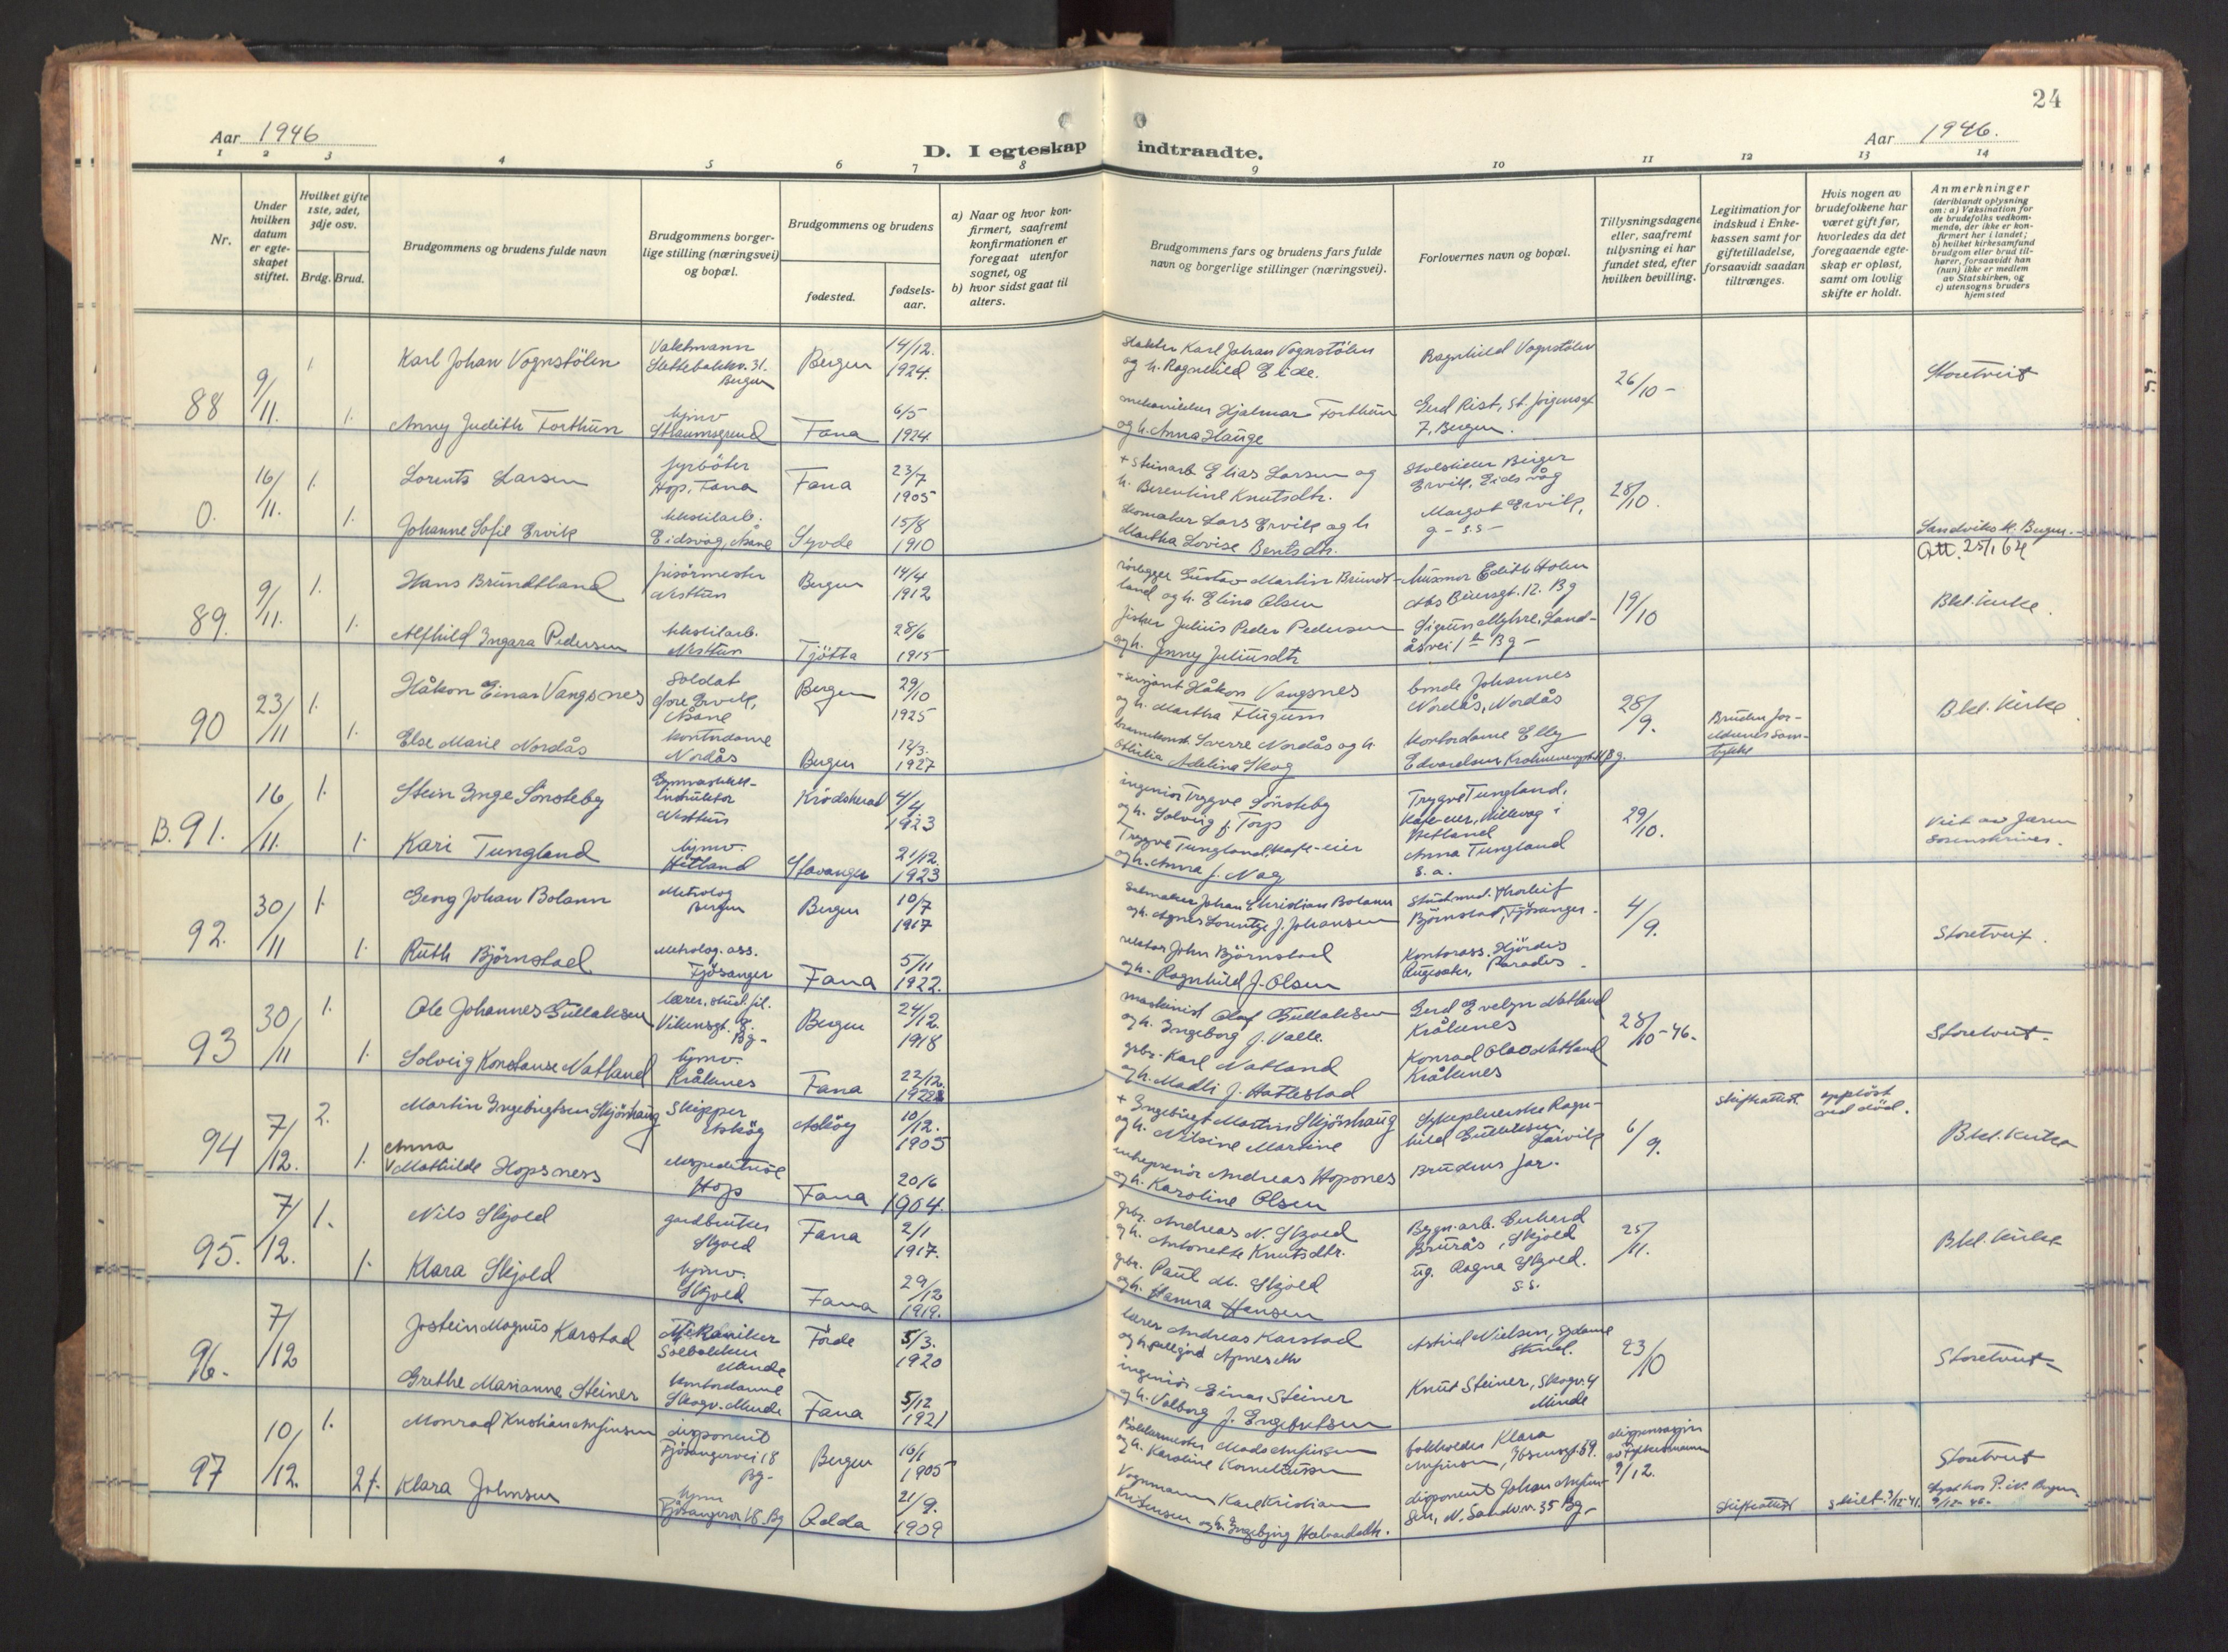 24
Aar 1946
Aar 1946.
D. I egteskap indtraadte.
1 2 3 4 5 6 7 8 9 10 11 12 13 14
Nr.
Under hvilken datum er egteskapet stiftet.
Hvilket gifte 1ste, 2det, 3dje osv.
Brdg. Brud.
Brudgommens og brudens fulde navn
Brudgommens borgerlige stilling (næringsvei) og bopæl.
Brudgommens og brudens
fødested.
fødselsaar.
a) Naar og hvor konfirmert, saafremt konfirmationen er foregaat utenfor sognet, og
b) hvor sidst gaat til alters.
Brudgommens fars og brudens fars fulde navn og borgerlige stillinger (næringsvei).
Forlovernes navn og bopæl.
Tillysningsdagene eller, saafremt tillysning ei har fundet sted, efter hvilken bevilling.
Legitimation for indskud i Enkekassen samt for giftetilladelse, forsaavidt saadan tiltrænges.
Hvis nogen av brudefolkene har været gift før, hvorledes da det foregaaende egteskap er opløst, samt om lovlig skifte er holdt.
Anmerkninger
(deriblandt oplysning om: a) Vaksination for de brudefolks vedkommende, der ikke er konfirmert her i landet;
b) hvilket kirkesamfund brudgom eller brud tilhører, forsaavidt han (hun) ikke er medlem av Statskirken, og
c) utensogns bruders hjemsted
88 9/11. 1
Karl Johan Vognstölen
Vaktmann
Slettebakkv. 31. Bergen
Bergen
14/12. 1924.
Karl Johan Vognstölen
og h. Ragnhild Eide.
Ragnhild Vognstölen
26/10 -
Storetveit
1.
Anny Judith Forthun
hjmv
Straumsgrend
Fana
6/5 1924
mekaniker Hjalmar Forthun
og h. Anna Hauge
Gerd Rist, St. Jörgensgt
7, Bergen.
0. 16/11. 1.
Lorents Larsen
fyrböter
Hop, Fana
Fana
23/7 1905
+ steinarb Elias Larsen og
h. Berentine Knutsdtr.
Birger
Ervik, Eidsvåg
28/10.
1.
Johanne Sofie Ervik
tekstilarb.
Eidsvåg, Åsane
Syvde
15/8 1910
skomaker Lars Ervik og h
Martha Lovise Bentsdtr.
Margot Ervik,
g - s.s -
Sandviksk. Bergen.
Att. 25/1 64
89. 9/11. 1.
Hans Brundtland
frisörmester
Nesttun
Bergen
14/4 1912
rörlegger Gustav Martin Brundtland
og h. Elina Olsen
husmor Edith Holen
Abs Beiersgt. 12. Bg
19/10
Bkl. kirke.
1.
Alfhild Ingara Pedersen
tekstilarb.
Nesttun
Tjötta
28/6 1915
fisker Julius Peder Pedersen
og h. Jenny Juliusdtr
Sigrun Myhre, Landåsvei
Bg -
90 23/11 1.
Håkon Einar Vangsnes
Soldat
Ervik,
Åsane
Bergen
29/10 1925
sersjant Håkon Vangsnes
og h. Martha Flugum
bonde Johannes
Nordås, Nordås
28/9.
Bkl. kirke.
1.
Else Marie Nordås
kontordame
Nordås
Bergen
12/3. 1927
Sverre Nordås og h.
Othilia Adelina Skog
kontordame Elly
Edvardsen
Bg.
Bruden foreldrenes samtykke
B. 91. 16/11. 1.
Stein Inge Sönsteby
Gymnastikkinstruktör
Nesttun
Krödsherad
4/4. 1923
ingeniör Trygve Sönsteby
og h. Solveig f. Torp
Trygve Tungland,
kafe-eier, Hillevåg i
Hetland
29/10.
Viet av Jæren
Sorenskriver.
1.
Kari Tungland
hjmv.
Hetland
Stavanger
21/12. 1923
Trygve Tungland, kafe-eier
og h. Anna f. Nag
Anna Tungland
s. a.
92. 30/11 1.
Georg Johan Bolann
Metrolog
Bergen
Bergen
10/7 1917
Johan Christian Bolann
og h. Agnes Lorentze f. Johansen
Stud. med. Thorleif
Björnstad, Fjösanger.
4/9.
Storetveit.
1.
Ruth Björnstad
Metrolog. ass.
Fjösanger
Fana
5/11 1922.
rektor John Björnstad
og h. Ragnhild f. Olsen
Kontorass. Hjördis
Paradis.
93 30/11 1.
Ole Johannes Gullaksen
lærer, stud. fil.
Vikensgt. 8. Bg -
Bergen
24/12. 1918
maskinist Olaf Gullaksen
og h. Ingeborg f. Valle.
Gerd Evelyn Natland
Kråkenes
28/10-46.
Storetveit.
1.
Solveig Konstanse Natland
hjmv.
Kråkenes
Fana
22/12. 1922
grbr. Karl Natland
og h. Madli f. Hatlestad
Konrad Olav Natland
Kråkenes
94 7/12. 2.
Martin Ingebrigtsen Skjörshaug
Skipper
Askög
Asköy
10/12. 1905
+ Ingebrigt Martin Skjörshaug
og h. Nilsine Martine
Sykepleierske Ragnhild
Gullaksen
6/9.
Skifteattest.
opplöst ved död.
Bkl. kirke
1.
Anna
v Mathilde Hopsness
ekspeditrise
Hop
Fana
20/6 1904.
entreprenör Andreas Hopsnes
og h. Karoline Olsen
Brudens far.
95. 7/12. 1.
Nils Skjold
gardbruker
Skjold
Fana
2/1 1917.
grbr. Andreas N. Skjold
og h. Antonette Knutsdtr.
Bygn. arb. Gerhard
Brurås, Skjold
25/11.
Bkl. kirke
1.
Klara Skjold
hjmv.
Skjold
Fana
29/12 1919.
grbr. Paul M. Skjold
og h. Hanna Hansen
ug. Ragna Skjold.
s.s.
96. 7/12
Jostein Magnus Karstad
Mekaniker
Solbakken
Minde
Förde
5/3. 1920
lærer Andreas Karstad
og h.
Astrid Nielsen, sydame
23/10
Storetveit -
Grethe Marianne Steiner
kontordame
Skogv. Minde
Fana
5/12 1921
ingeniör Einar Steiner
og h. Valborg f. Engebretsen
Knut Steiner, Skogv. 4
Minde
97 10/12. 1.
Monrad Kristian Anfinsen
disponent
Fjösangervei 18
Bg -
Bergen
16/1 1905
Böckermester Mads Anfinsen
og h. Karoline Korneliussen
bokholder Klara
Anfinsen, Ibsensgt. 59.
dispensasjon
av Fylkesmannen
9/12.
Storetveit
2 f.
Klara Johnsen
hjmv
Fjösangervei 18. Bg
Odda
21/9. 1909
Vognmann Karl Kristian
Knutsen og h. Ingebjörg Halvardsdtr.
disponent Johan Anfinsen,
N. Sandv. v. 35 Bg -
Skifteattest
skilt